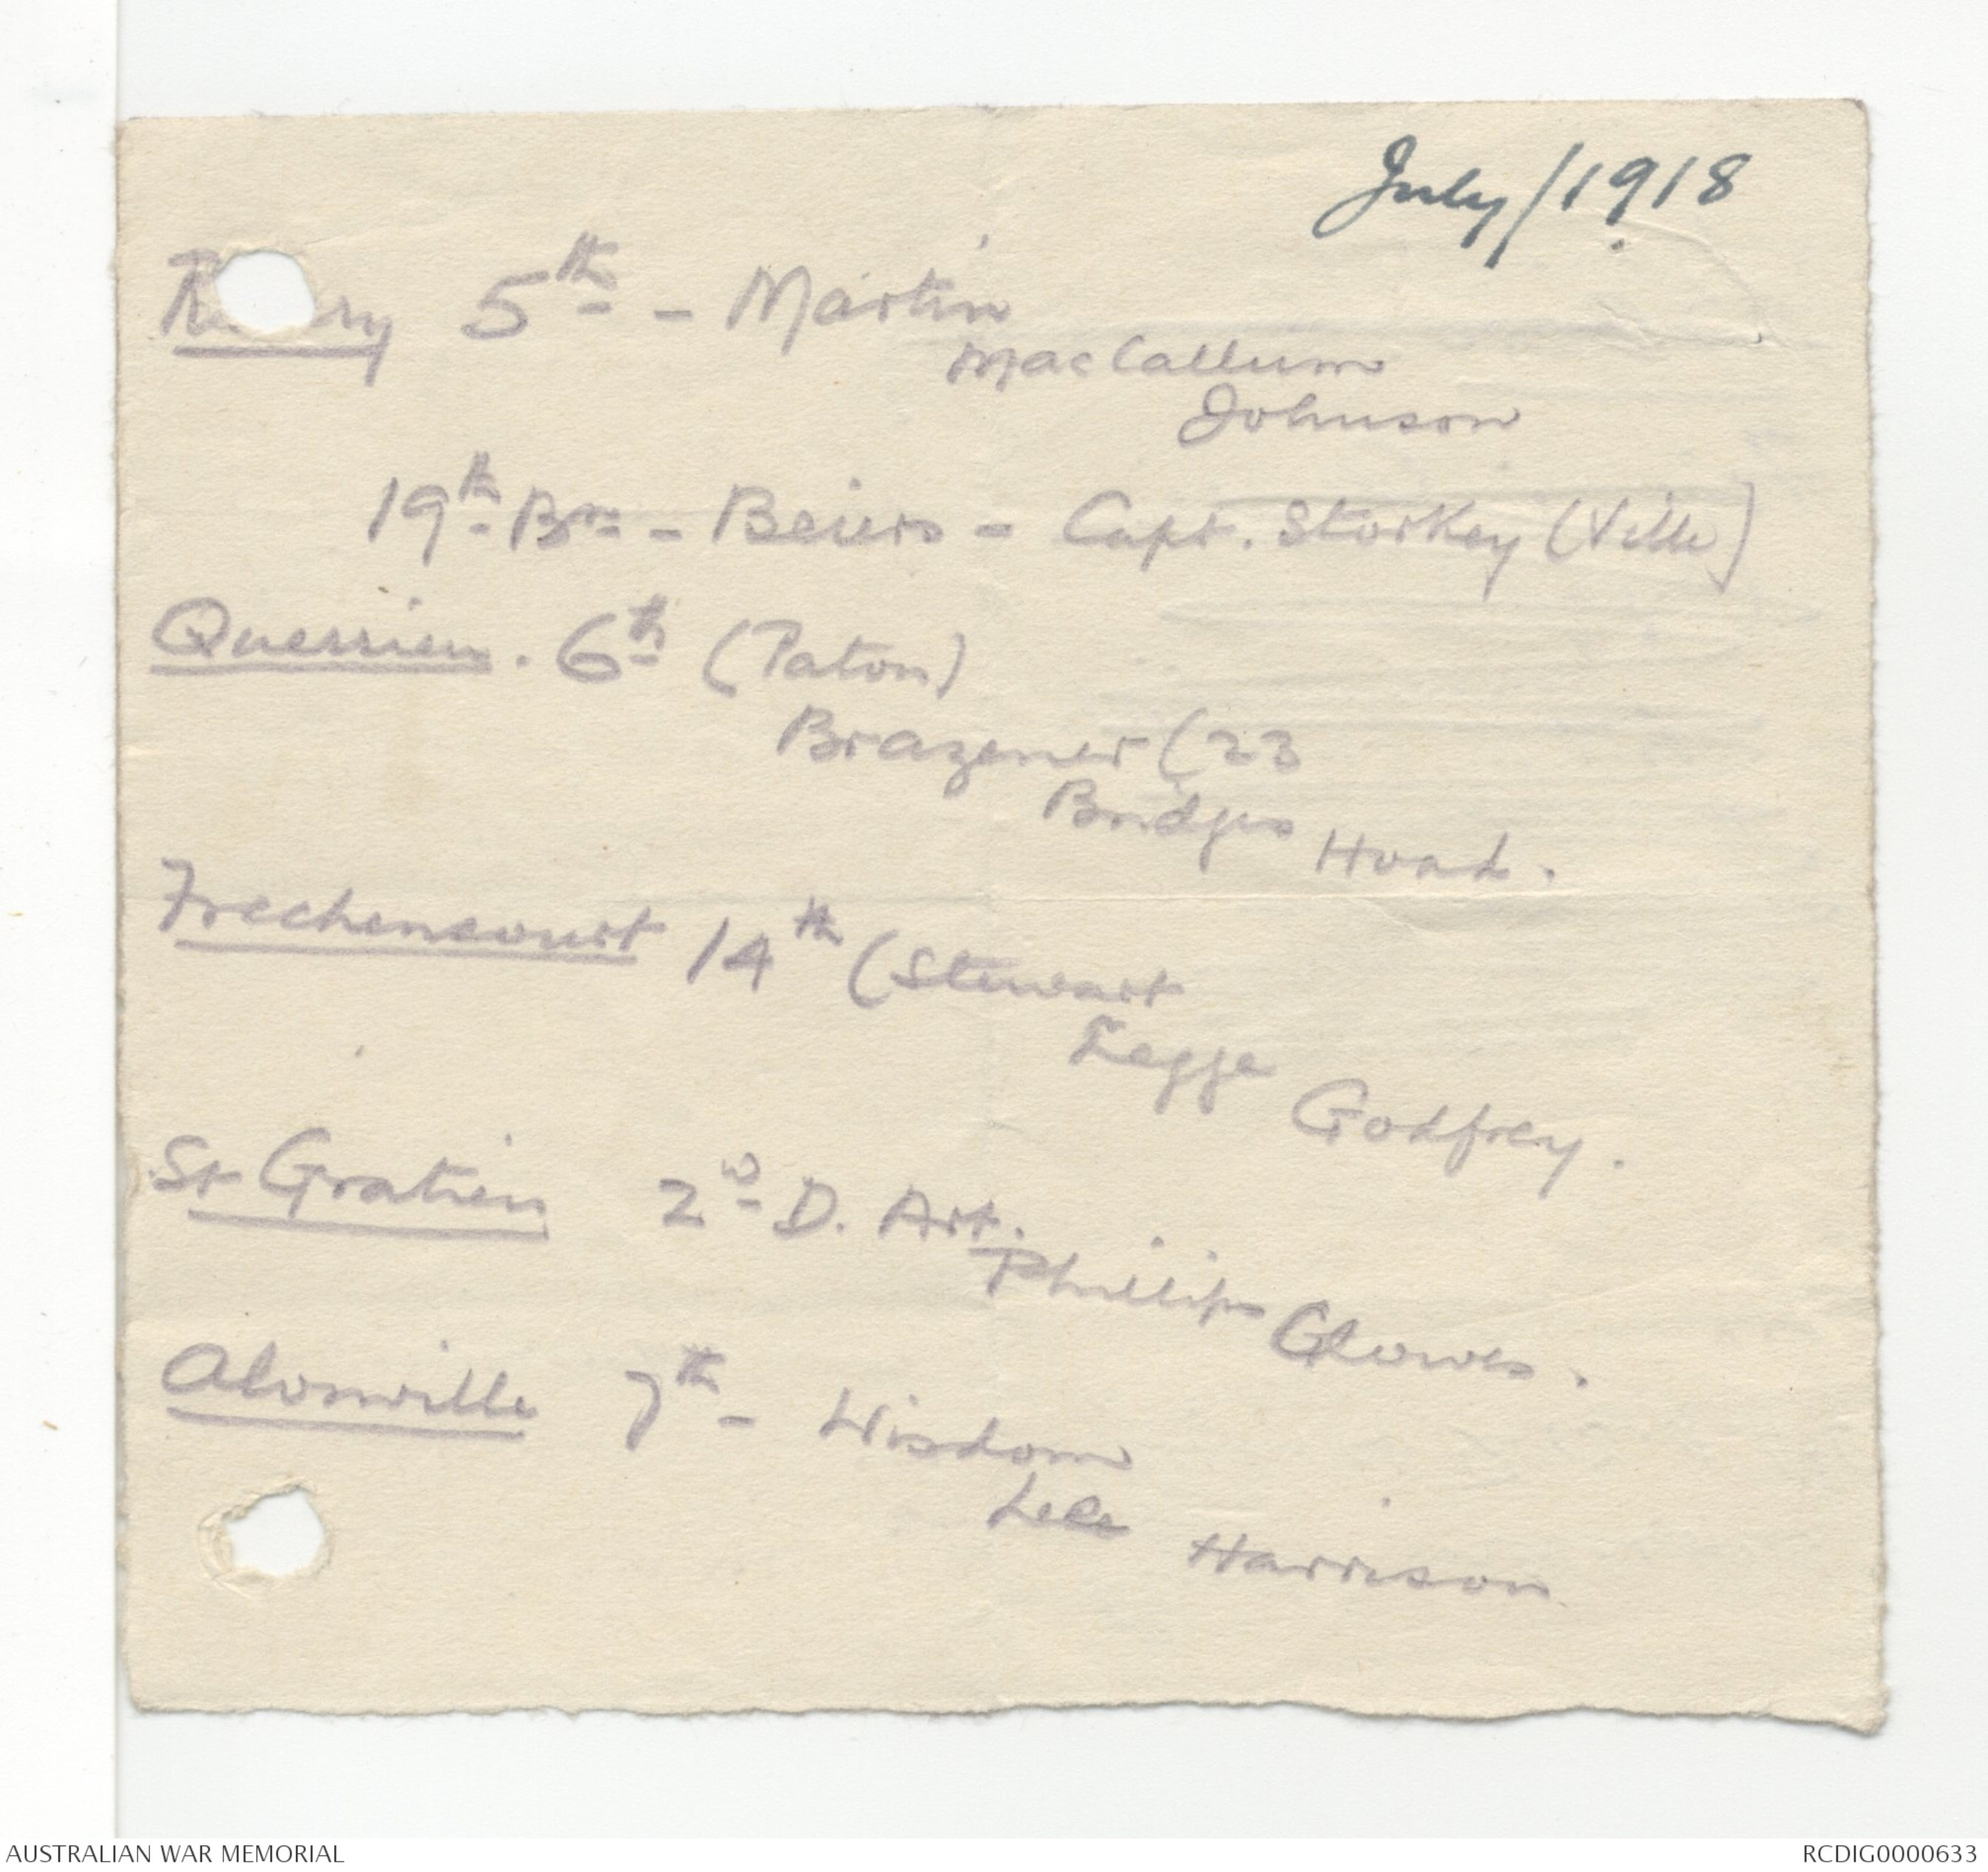 July/1918
5th - Martin
MacCallum
Johnson
19th Bn - Beiers - Capt. Storkey (Ville)
Querrieu. 6th (Paton)
Brazener (23
Bridges Hoad.
Frechencourt 14th (Stewart
Legge
Godfrey.
St Gratien 2nd D. Art.
Phillips Clowes.
Alonville 7th - Wisdom
Harrison
AUSTRALIAN WAR MEMORIAL
RCDIG0000633